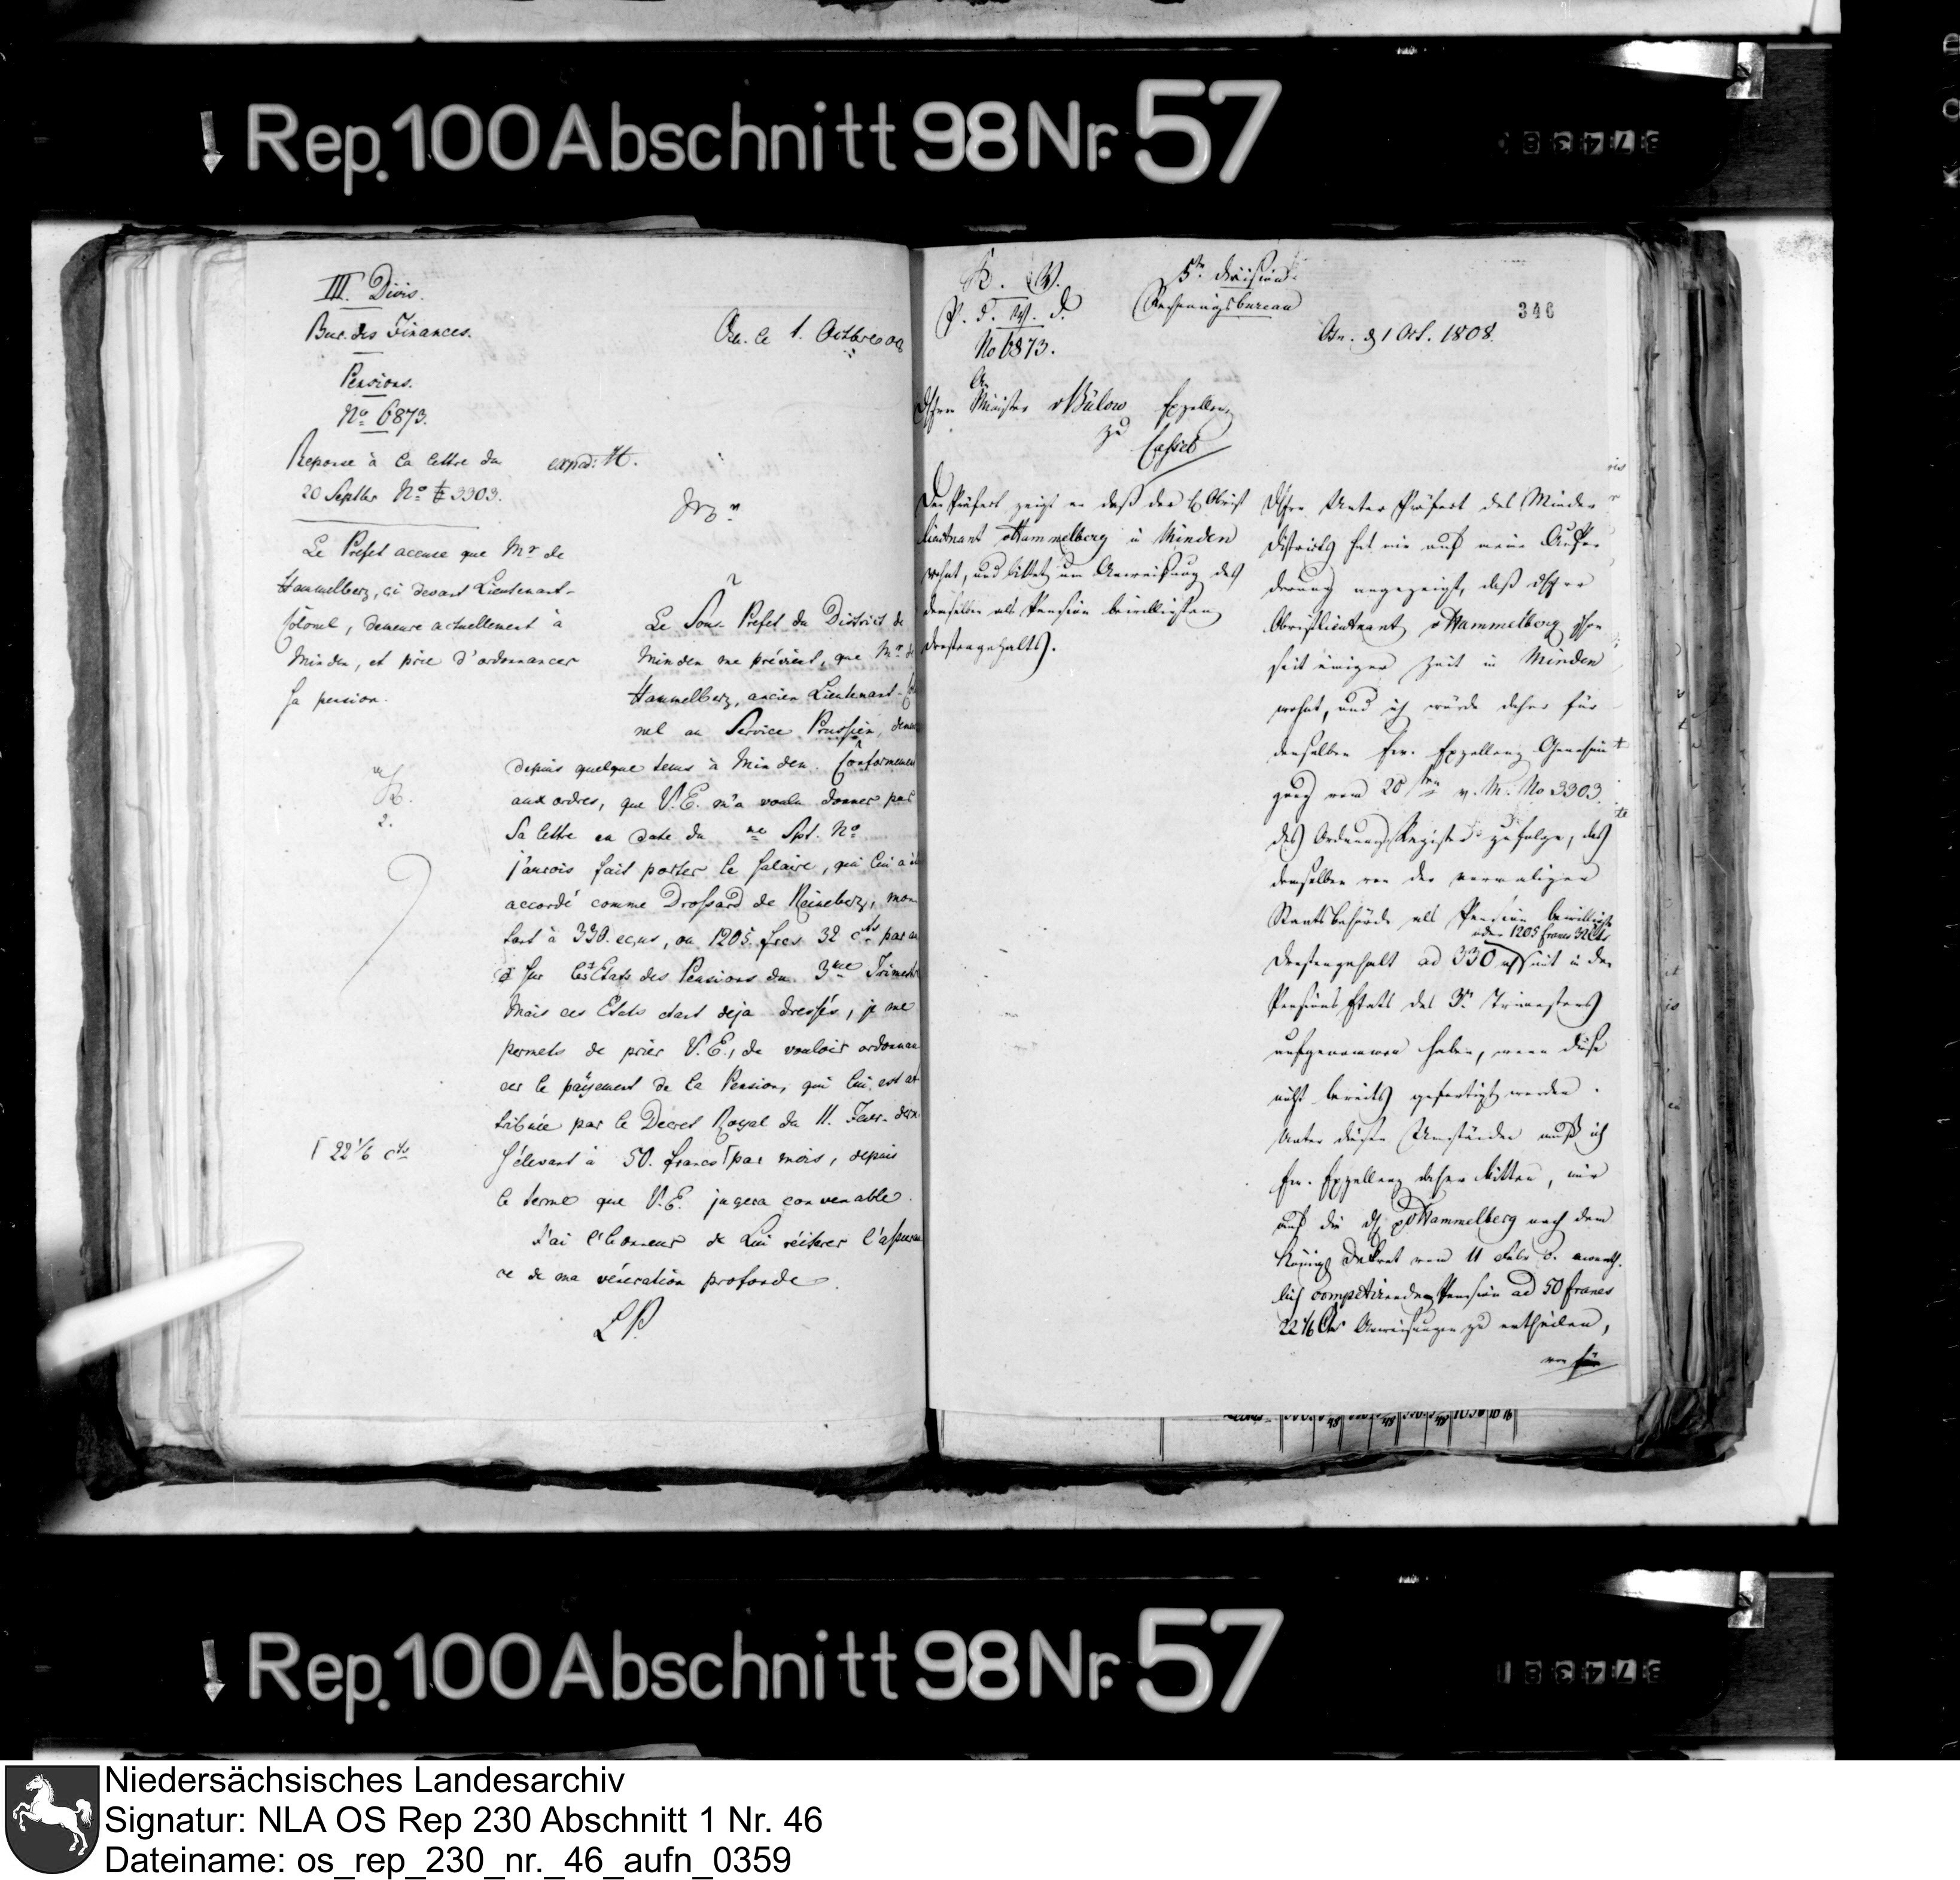 Rep. 100 Abschnitt 98 Nr. 57
III. Divis.
Bur. des Finances.
Osn. le 1. Octbre 08
Pensions.
No 6873.
Reponse à la lettre du
20 Septbr No 3303.
exped: H.
Le Prefet accuse que Mr de
Hammelberg, ci devant Lieutenant-
Colonel, demeure actuellement à
Minden, et prie d'ordonnancer
sa pension.
Le Sous Prefet du District de
Minden me prévient, que Mr de
Hammelberg, ancien Lieutenant-Colo
nel au Service Prussien, demeure
depuis quelque tems à Minden. Conformement
aux ordres, que V. E. m'a voulu donner par
Sa lettre en date du me Spt. No
j'aurois fait porter le salaire, qui lui a été
accordé comme Drossard de Reineberg, mon
tant à 330. ecus, ou 1205. frcs 32 cts par an
sur les Etats des Pensions du 3me Trimestre
Mais ces Etats etant deja dressés, je me
permets de prier V. E., de vouloir ordonnan
cer le payement de la Pension, qui lui est at
tribuée par le Decret Royal du 11. Fevr. dern.
s'élevant à 50. francs par mois, depuis
22 1/6 cts
le terme que V. E. jugera convenable.
J'ai l'honneur de Lui réiterer l'assuran
ce de ma vénération profonde.
L P.
K. W.
P. d. W. D.
No 6873.
5te Division.
Rechnungsbureau
346
Osn. d 1 Oct. 1808.
An
Minister v Bülow Exzellenz
zu
Cassel
Der Präfect zeigt an daß der H. Obrist
lieutnant v Hammelberg in Minden
wohnt, und bittet um Anweisung des
demselben als Pension bewilligten
Drostengehalts.
Der Herr Unter Präfect des Minder
Districts hat mir auf meine Auffor
derung angezeigt, daß der Herr
Obristlieutnant v Hammelberg schon
seit einiger Zeit in Minden
wohnt, und ich würde daher für
denselben Ew. Exzellenz Genehmi
gung vom 20ten v. M. No 3303.
des Ordnungs Registers zufolge, das
demselben von der vormaligen
Staatsbehörde als Pension bewilligte
oder 1205 francs 32 Cts
Drostengehalt ad 330 rt mit in den
Pensions Etats des 3n Trimesters
aufgenommen haben, wenn diese
nicht bereits gefertigt worden.
Unter diesen Umständen muß ich
Ew. Exzellenz daher bitten, mir
auf die dH v Hammelberg nach dem
Königl Dekret vom 11 Febr d. monath
lich competirende Pension ad 50 francs
22 1/6 Cts Anweisungen zu ertheilen,
wo für
Rep. 100 Abschnitt 98 Nr. 57
Niedersächsisches Landesarchiv
Signatur: NLA OS Rep 230 Abschnitt 1 Nr. 46
Dateiname: os_rep_230_nr._46_aufn_0359